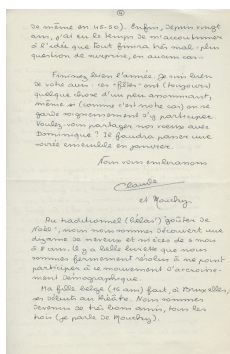 de même en 45-50). Enfin, depuis vingt
ans, j'ai eu le temps de m'accoutumer
à l'idée que tout finira très mal : plus
question de surprise, en aucun cas.
Finissez bien l'année. Je suis bien
de votre avis : ces "fêtes" ont (toujours)
quelque chose d'un peu assommant,
même si (comme c'est notre cas) on se
garde soigneusement d'y participer.
Voulez-vous partager nos vœux avec
Dominique ? Il faudra passer une
soirée ensemble en janvier.
Nous vous embrassons
Claude
et
Au traditionnel (hélas !) "goûter de
Noël", nous nous sommes découvert une
dizaine de neveux et nièces de 2 mois
à 8 ans. Il y a belle lurette que nous
sommes fermement résolus à ne point
participer à ce mouvement d'accroisse-
ment démographique.
Ma fille belge (16 ans) fait, à Bruxelles,
ses débuts au théâtre. Nous sommes
devenus de très bons amis, tous les